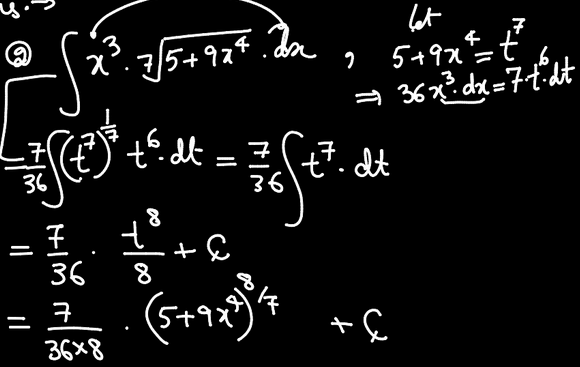 ② ∫ x³ · ⁷√(5+9x⁴) · dx , let 5+9x⁴ = t⁷
⇒ 36x³·dx = 7·t⁶·dt
= 7/36 ∫ (t⁷)^(1/7) t⁶·dt = 7/36 ∫ t⁷·dt
= 7/36 · t⁸/8 + C
= 7/(36×8) · (5+9x⁴)^(8/7) + C